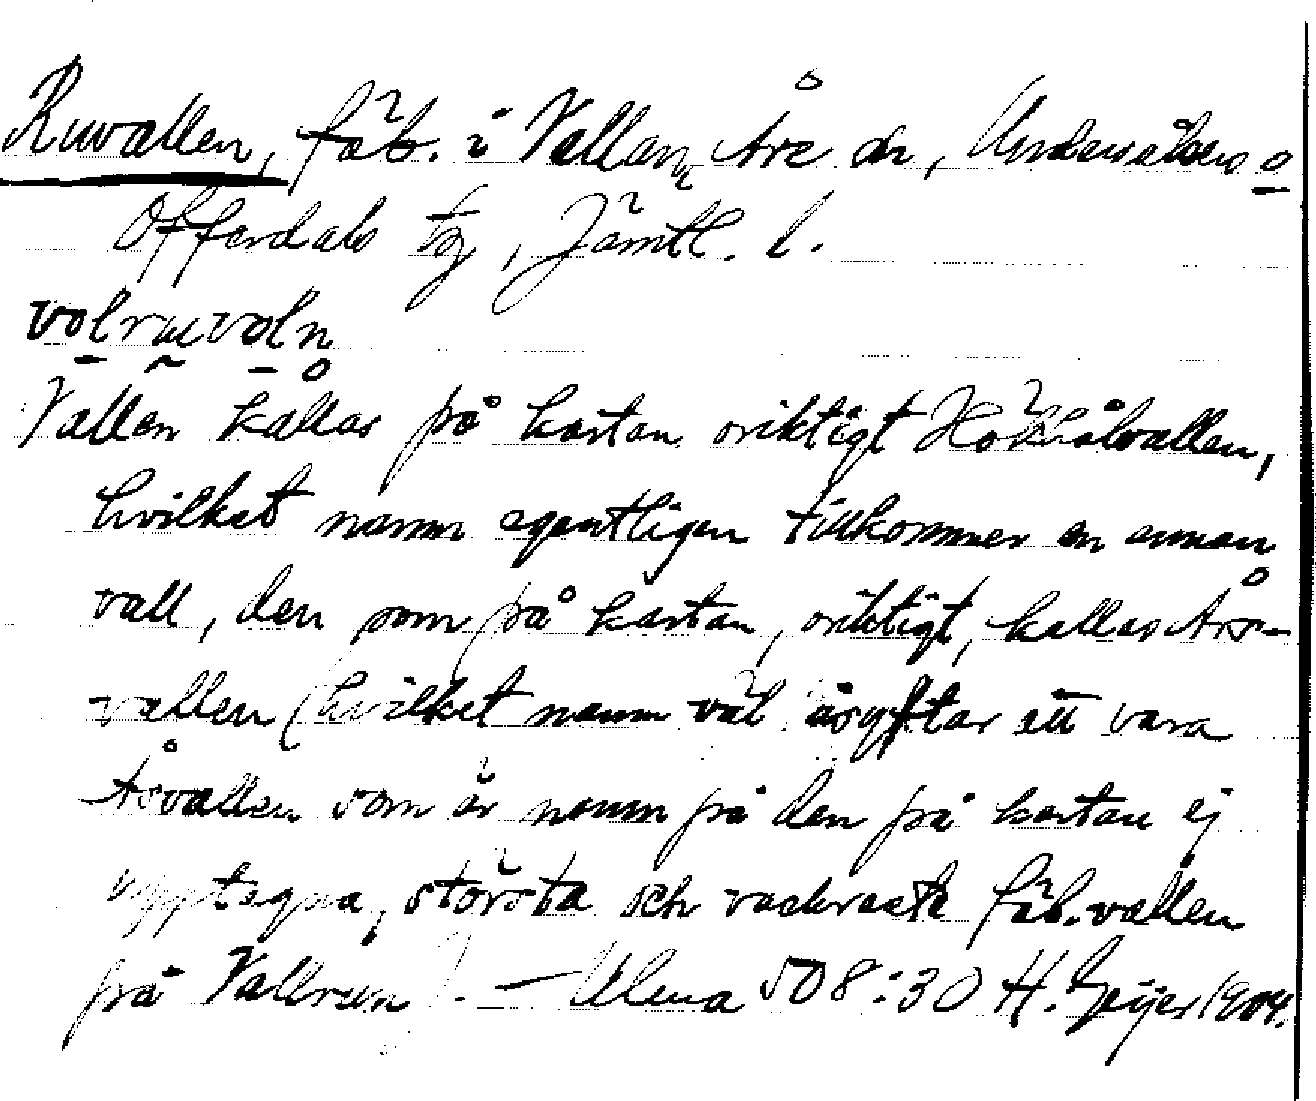 Ruvallen, fäb. i Vallan, Åre sn, Undersåkers o
Offerdals tg, Jämtl. l.
volruvoln
Vallen kallas på kartan oriktigt Hökhålvallen,
hvilket namn egentligen tillkommer en annan
vall, den som på kartan, oriktigt, kallas Åre-
vallen (hvilket namn väl åsyftar att vara
Åsvallen som är namn på den på kartan ej
upptagna, största och vackraste fäb.vallen
på Vallrun). – Ulma 508:30 H. Geijer 1904.